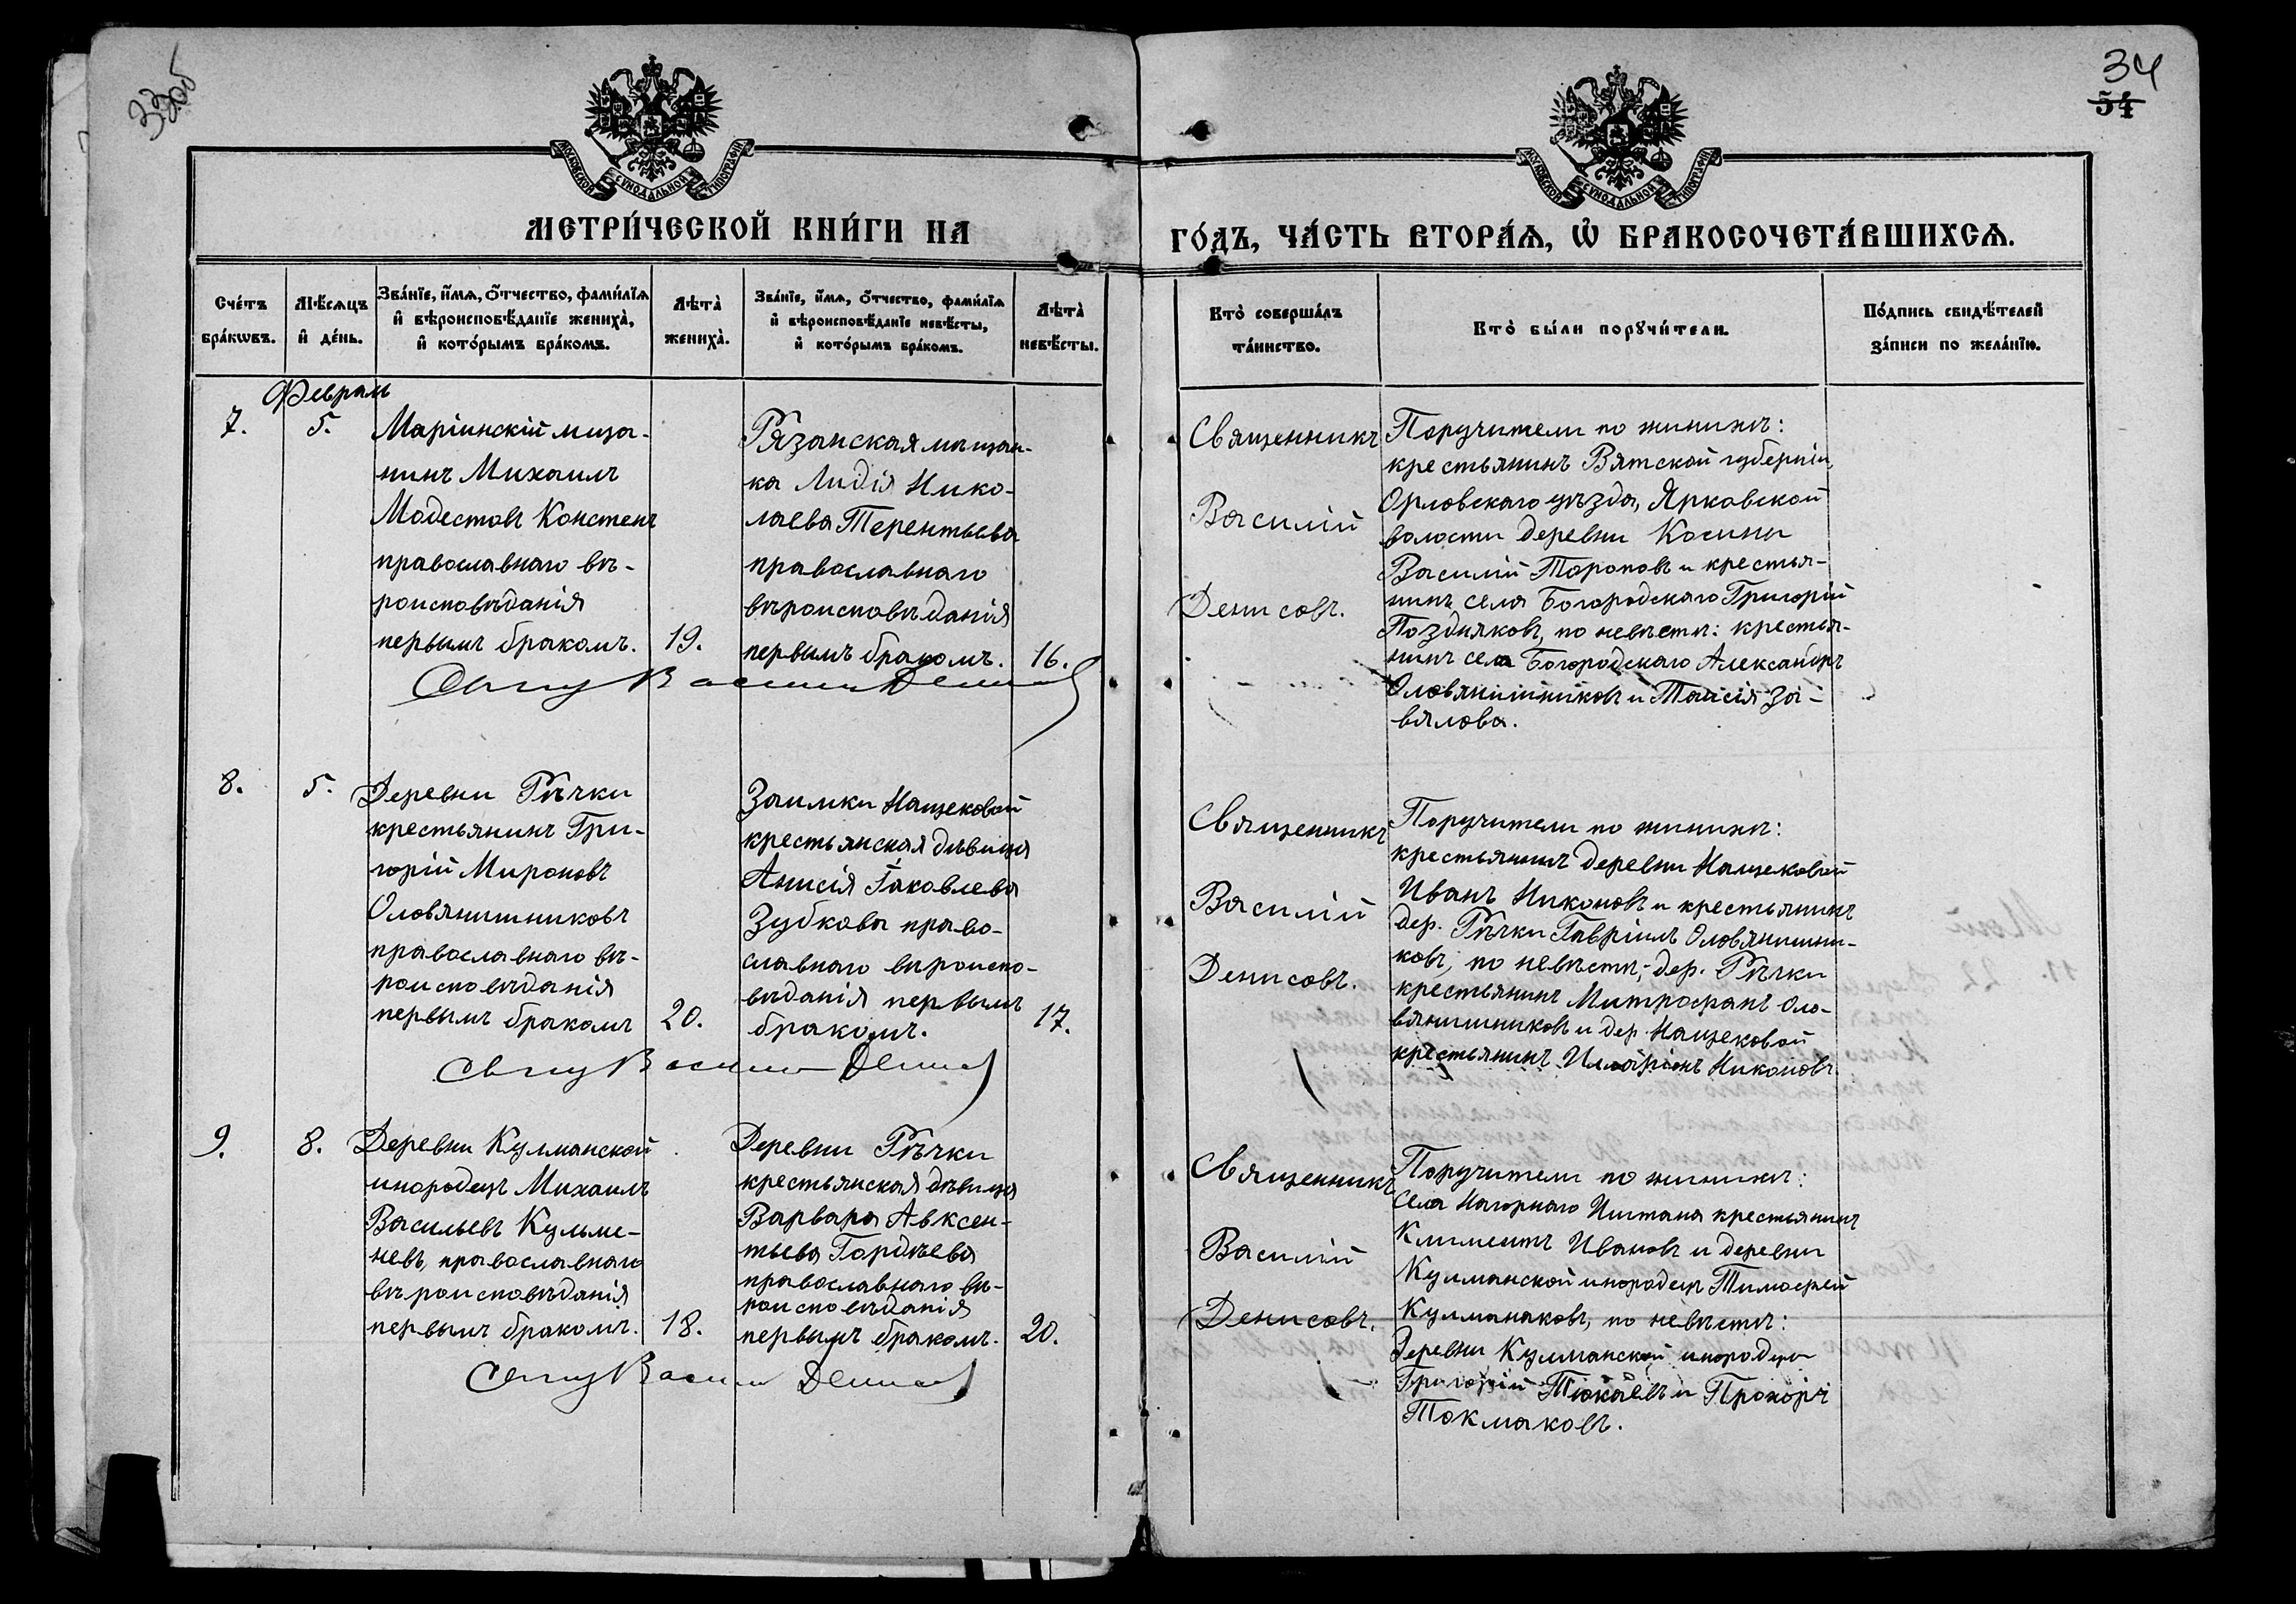 33об
34
54
МОСКОВСКОЙ СѴНОДАЛЬНОЙ ТИПОГРАФІИ
МОСКОВСКОЙ СѴНОДАЛЬНОЙ ТИПОГРАФІИ
МЕТРИ́ЧЕСКОЙ КНИ́ГИ НА
ГО́ДЪ, ЧА́СТЬ ВТОРА́Я, Ѡ БРАКОСОЧЕТА́ВШИХСЯ.
Сче́тъ
бра́кωвъ.
Мѣ́сяцъ
и҆ де́нь.
Зва́нїе, и҆́мя, ѻ҆́тчество, фами́лїя
и҆ вѣроисповѣ́данїе жениха̀,
и҆ кото́рымъ бра́комъ.
Лѣта̀
жениха̀.
Зва́нїе, и҆́мя, ѻ҆́тчество, фами́лїя
и҆ вѣроисповѣ́данїе невѣ́сты,
и҆ кото́рымъ бра́комъ.
Лѣта̀
невѣ́сты.
Кто̀ соверша́лъ
та́инство.
Кто̀ бы́ли порꙋчи́тели.
По́дпись свидѣ́телей
за́писи по жела́нїю.
Февраль
7.
5.
Маріинскій мѣща-
нинъ Михаилъ
Модестовъ Констен
православнаго вѣ-
роисповѣданія
первымъ бракомъ.
19.
Рязанская мѣщан-
ка Лидія Нико-
лаева Терентьева
православнаго
вѣроисповѣданія
первымъ бракомъ.
16.
Священникъ
Василій
Денисовъ.
Поручители по женихѣ:
крестьянинъ Вятской губерніи,
Орловскаго уѣзда, Ярковской
волости деревни Косины
Василій Тороповъ и крестья-
нинъ села Богородскаго Григорій
Поздняковъ, по невѣстѣ: крестья-
нинъ села Богородскаго Александръ
Оловянишниковъ и Таисія За-
вялова.
Свящ Василий Денисов
8.
5.
Деревни Рѣчки
крестьянинъ Гри-
горій Мироновъ
Оловянишниковъ
православнаго вѣ-
роисповѣданія
первымъ бракомъ
20.
Заимки Нащековой
крестьянская дѣвица
Анисія Іаковлева
Зубкова право-
славнаго вѣроиспо-
вѣданія первымъ
бракомъ.
17.
Священникъ
Василій
Денисовъ.
Поручители по женихѣ:
крестьянинъ деревни Нащековой
Иванъ Никоновъ и крестьянинъ
дер. Рѣчки Гавріилъ Оловянишни-
ковъ, по невѣстѣ; дер. Рѣчки
крестьянинъ Митрофанъ Оло-
вянишниковъ и дер. Нащековой
крестьянинъ Иларіонъ Никоновъ.
Свящ Василий Денисов
9.
8.
Деревни Кулманской
инородецъ Михаилъ
Васильевъ Кульме-
невъ, православнаго
вѣроисповѣданія
первымъ бракомъ.
18.
Деревни Рѣчки
крестьянская дѣвица
Варвара Авксен-
тьева Гордѣева
православнаго вѣ-
роисповѣданія
первымъ бракомъ.
20.
Священникъ
Василій
Денисовъ.
Поручители по женихѣ:
Села Нагорнаго Иштана крестьянинъ
Климентъ Ивановъ и деревни
Кулманской инородецъ Тимофей
Кулманаковъ, по невѣстѣ:
Деревни Кулманской инородцы
Григорій Тюкаевъ и Прохоръ
Токмаковъ.
Свящ Василий Денисов